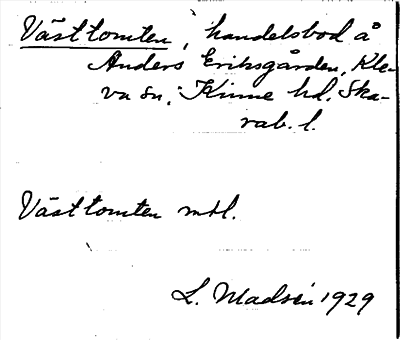 Västtomten, handelsbod å
Anders Eriksgården, Kle-
va sn, Kinne hd. Ska-
rab. l.
Västtomten mtl.
L. Madsén 1929